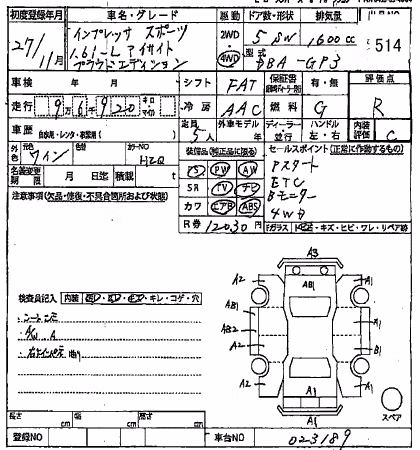 初度登録年月 車名・グレード 駆動 ドア数・形状 排気量
27/11月 インプレッサ スポーツ 2WD 5 SW 1600cc 514
1.6i-L アイサイト 4WD 型式
プラウドエディション DBA-GP3
車検 年 月 シフト FAT 保証書 有・無 評価点
走行 9万6千920 キロ マイル 冷房 AAC 燃料 G R
車歴 自家用・レンタ・事業用 定員 5人 外車モデル ディーラー 並行 ハンドル 左・右 内装評価 C
外色 元色 ワイン 色替 カラーNO H2Q 装備品(純正品に限る) セールスポイント(正常に作動するもの)
名義変更期限 月 日迄 積載 t PS PW AW Pスタート
注意事項(欠品・修復・不具合箇所および状態) SR TV ナビ ETC
カワ エアB ABS Bモニター
4WD
R券 12030円 Fガラス トビ石・キズ・ヒビ・ワレ・リペア
A3
A2 A1
AB1
AB1 A1
AB2
A2 B1
A2 A1
A1
A1
検査員記入 内装 キレ・コゲ・穴
シート
A/W A
スペア
長さ cm 幅 cm 高さ cm
登録NO 車台NO 023189